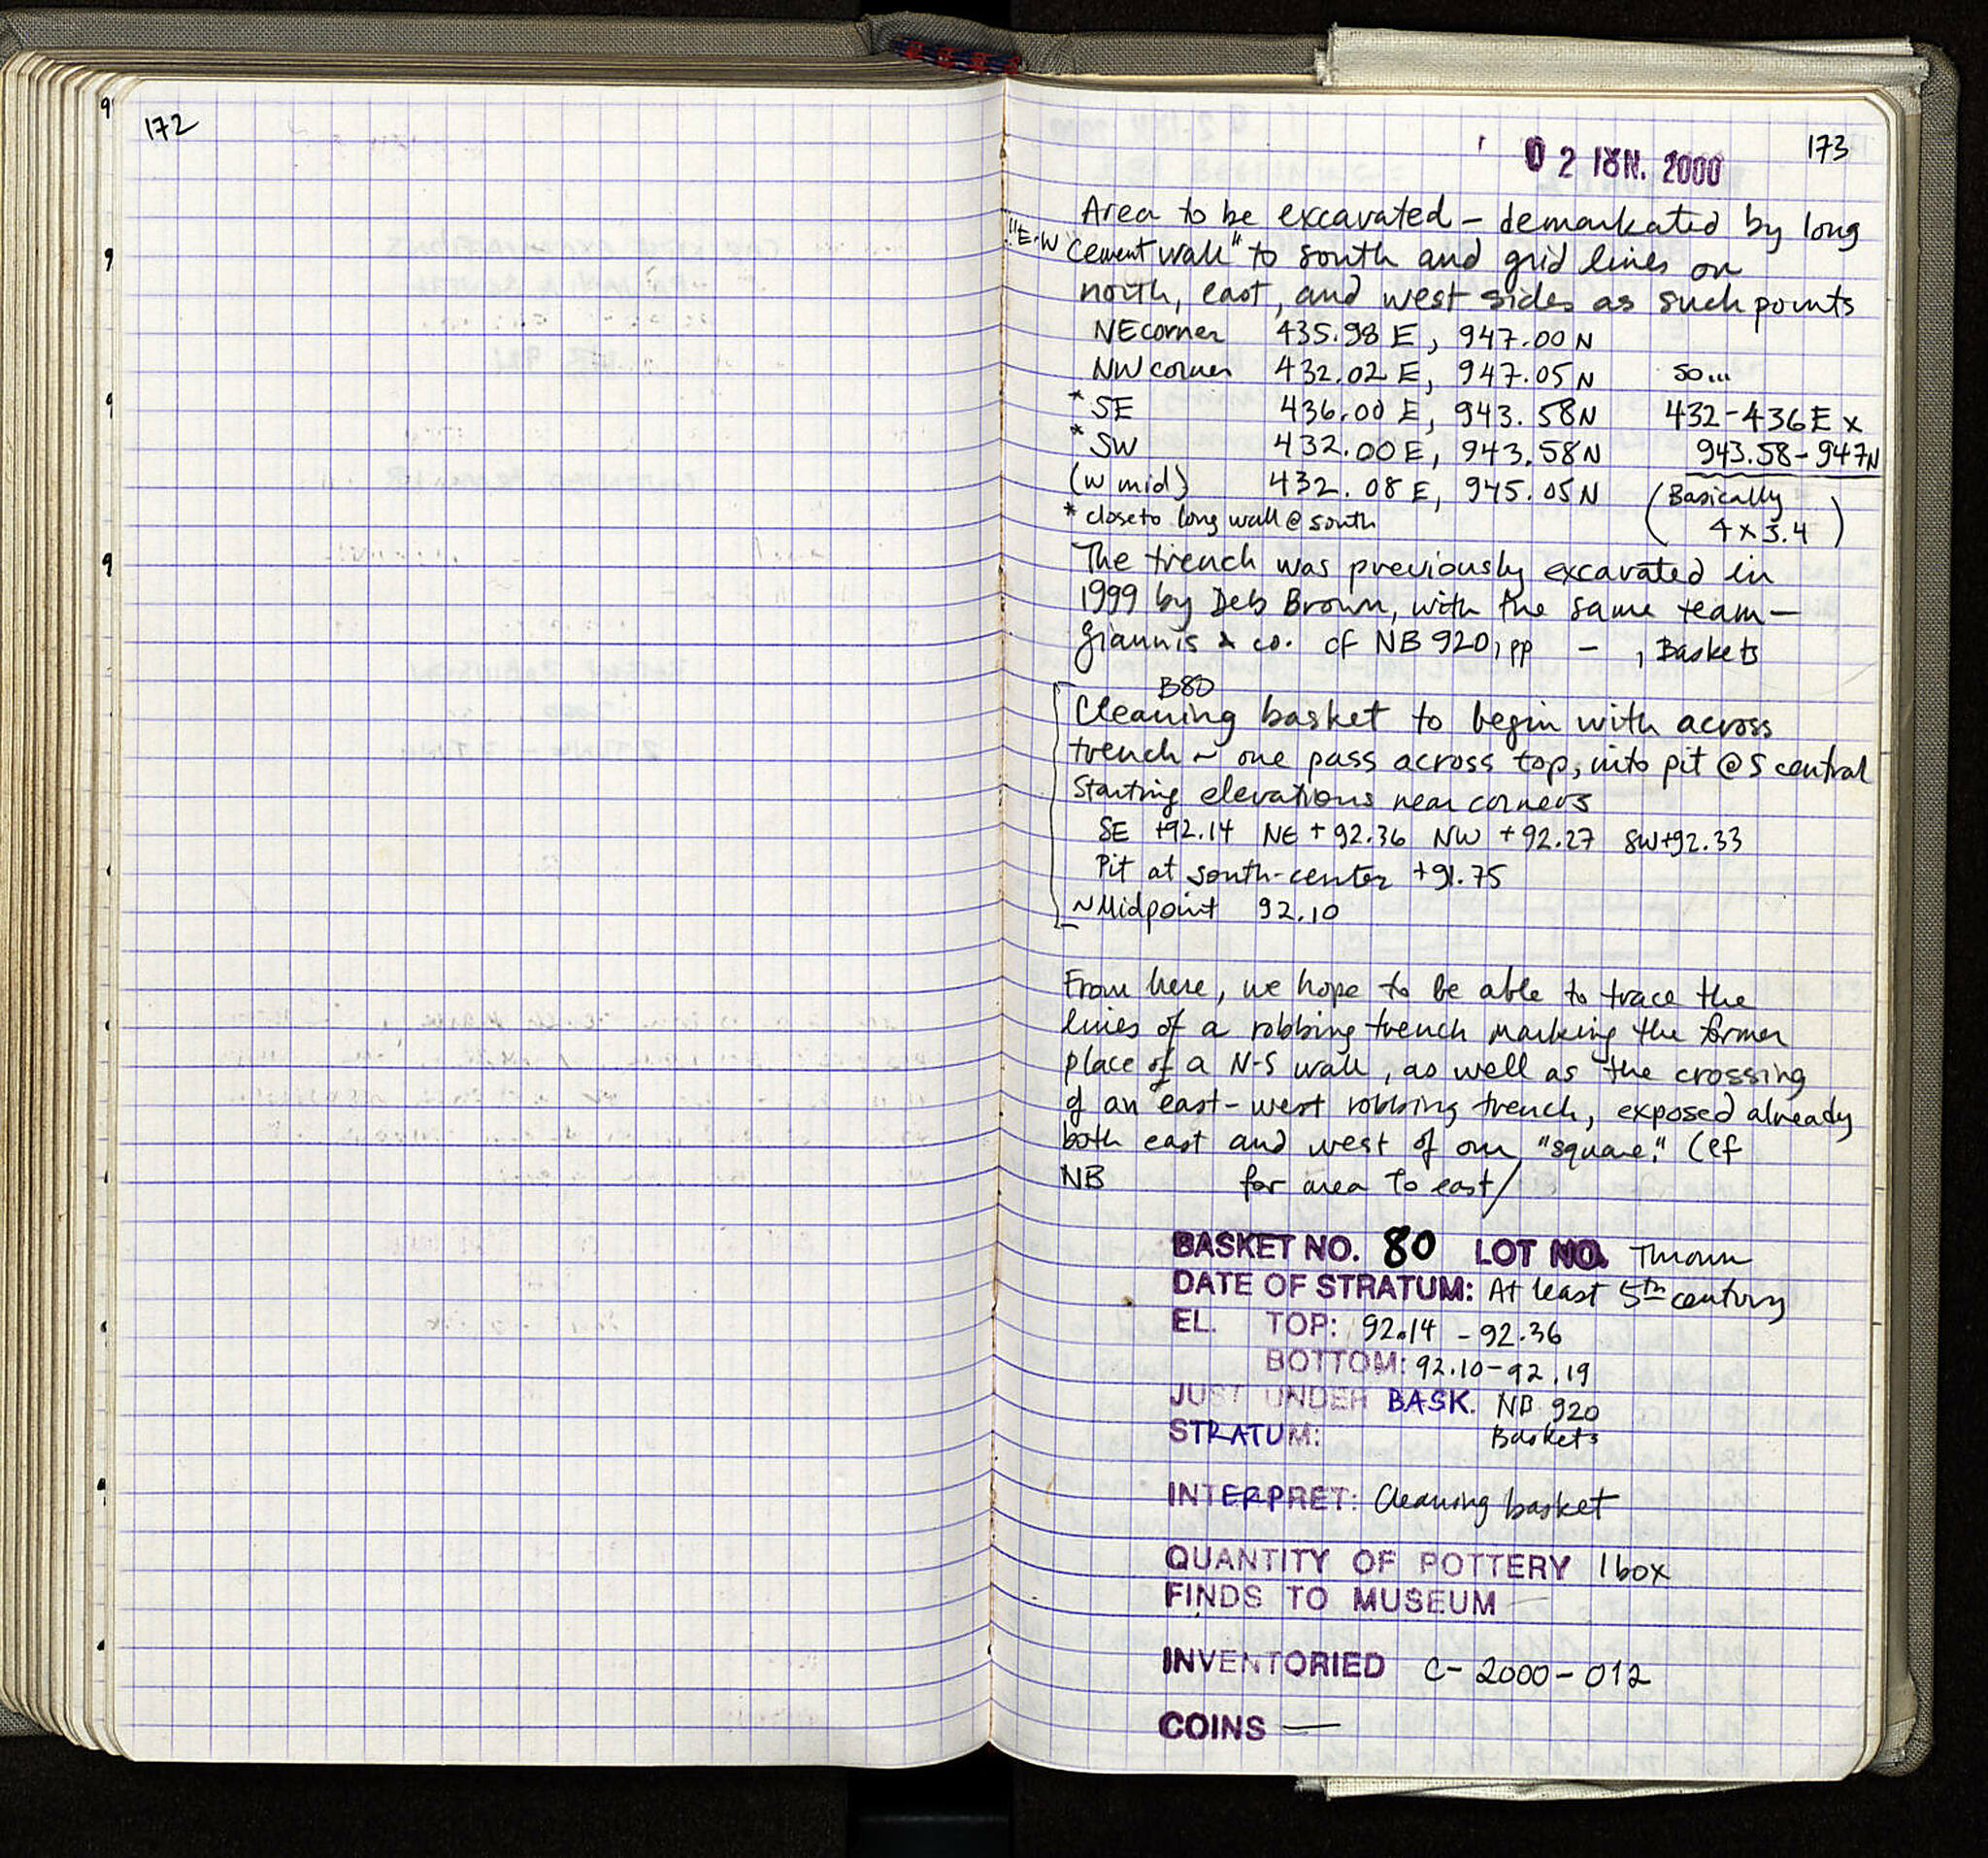 172
02 ΙΟΥΝ. 2000
173
Area to be excavated – demarkated by long
"E-W cement wall" to south and grid lines on
north, east, and west sides as such points
NE corner 435.98 E, 947.00 N
NW corner 432.02 E, 947.05 N so...
* SE 436.00 E, 943.58 N 432-436 E x
* SW 432.00 E, 943.58 N 943.58-947 N
(W mid) 432.08 E, 945.05 N (Basically
* close to long wall @ south 4 x 3.4)
The trench was previously excavated in
1999 by Deb Brown, with the same team –
Giannis & co. cf NB 920, pp – , Baskets
B80
Cleaning basket to begin with across
trench ~ one pass across top, into pit @ S central
Starting elevations near corners
SE +92.14 NE +92.36 NW +92.27 SW +92.33
Pit at south-center +91.75
~ Midpoint 92.10
From here, we hope to be able to trace the
lines of a robbing trench marking the former
place of a N-S wall, as well as the crossing
of an east-west robbing trench, exposed already
both east and west of our "square." (cf
NB for area to east/
BASKET NO. 80 LOT NO. Thrown
DATE OF STRATUM: At least 5th century
EL. TOP: 92.14 - 92.36
BOTTOM: 92.10-92.19
JUST UNDER BASK. NB 920
STRATUM: Baskets
INTERPRET: Cleaning basket
QUANTITY OF POTTERY 1 box
FINDS TO MUSEUM —
INVENTORIED C-2000-012
COINS —